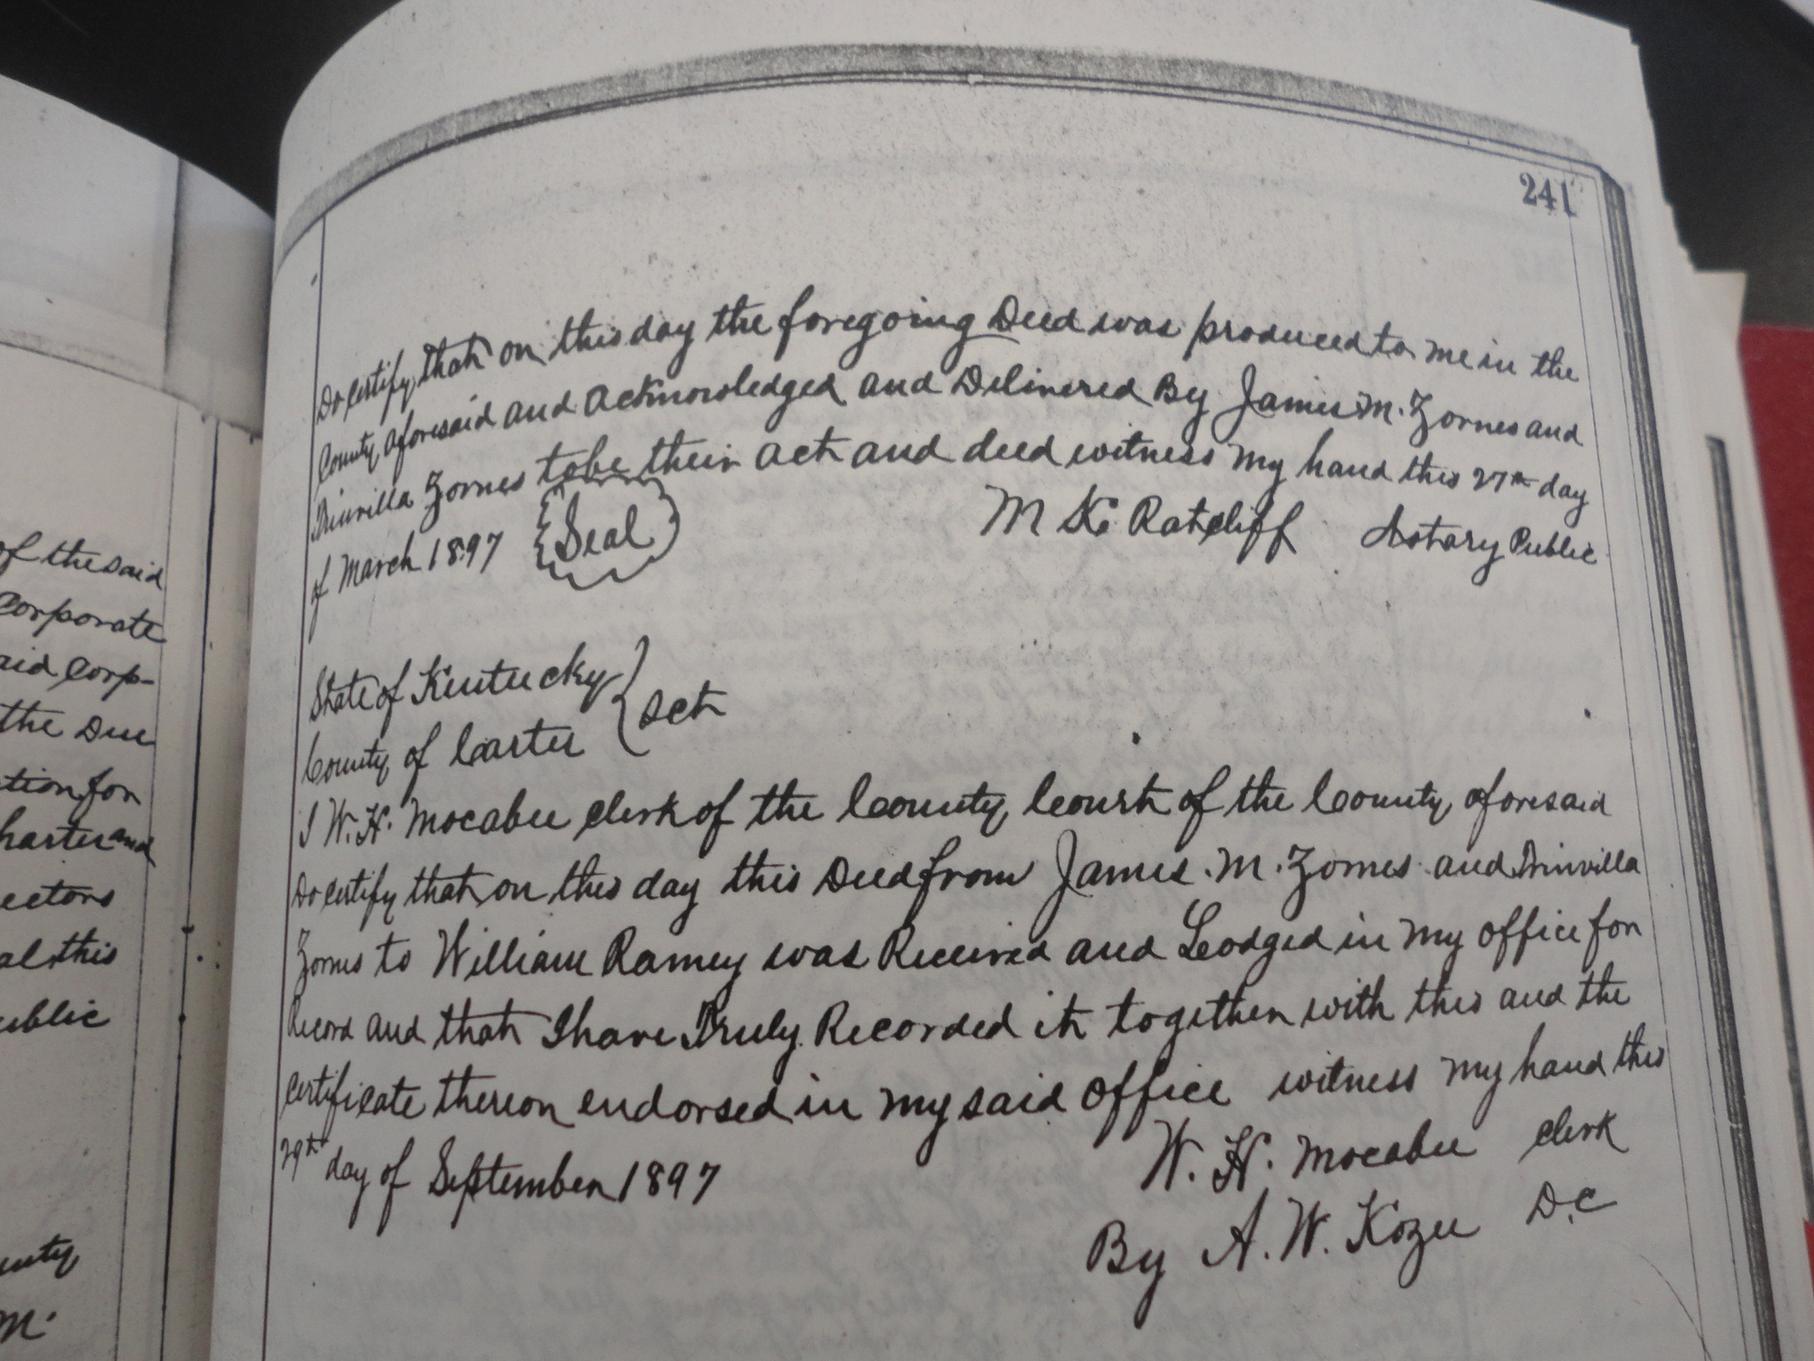 of the said
corporate
aid corp-
the Due
tion for
harter and
ectors
al this
ublic
unty
M.
241
Do certify that on this day the foregoing Deed was produced to me in the
County aforesaid and acknowledged and Delivered By James M. Zornes and
Trinvilla Zornes to be their act and deed witness my hand this 27th day
of March 1897 {Seal} M K. Ratcliff Notary Public
State of Kentucky
County of Carter } Sct
I W. H. Mocabee Clerk of the County Court of the County aforesaid
Do certify that on this day this Deed from James. M. Zornes and Trinvilla
Zornes to William Ramey was Received and Lodged in my office for
Record and that I have Truly Recorded it together with this and the
certificate thereon endorsed in my said office witness my hand this
29th day of September 1897 W. H. Mocabee Clerk
By A. W. Kozee D.C